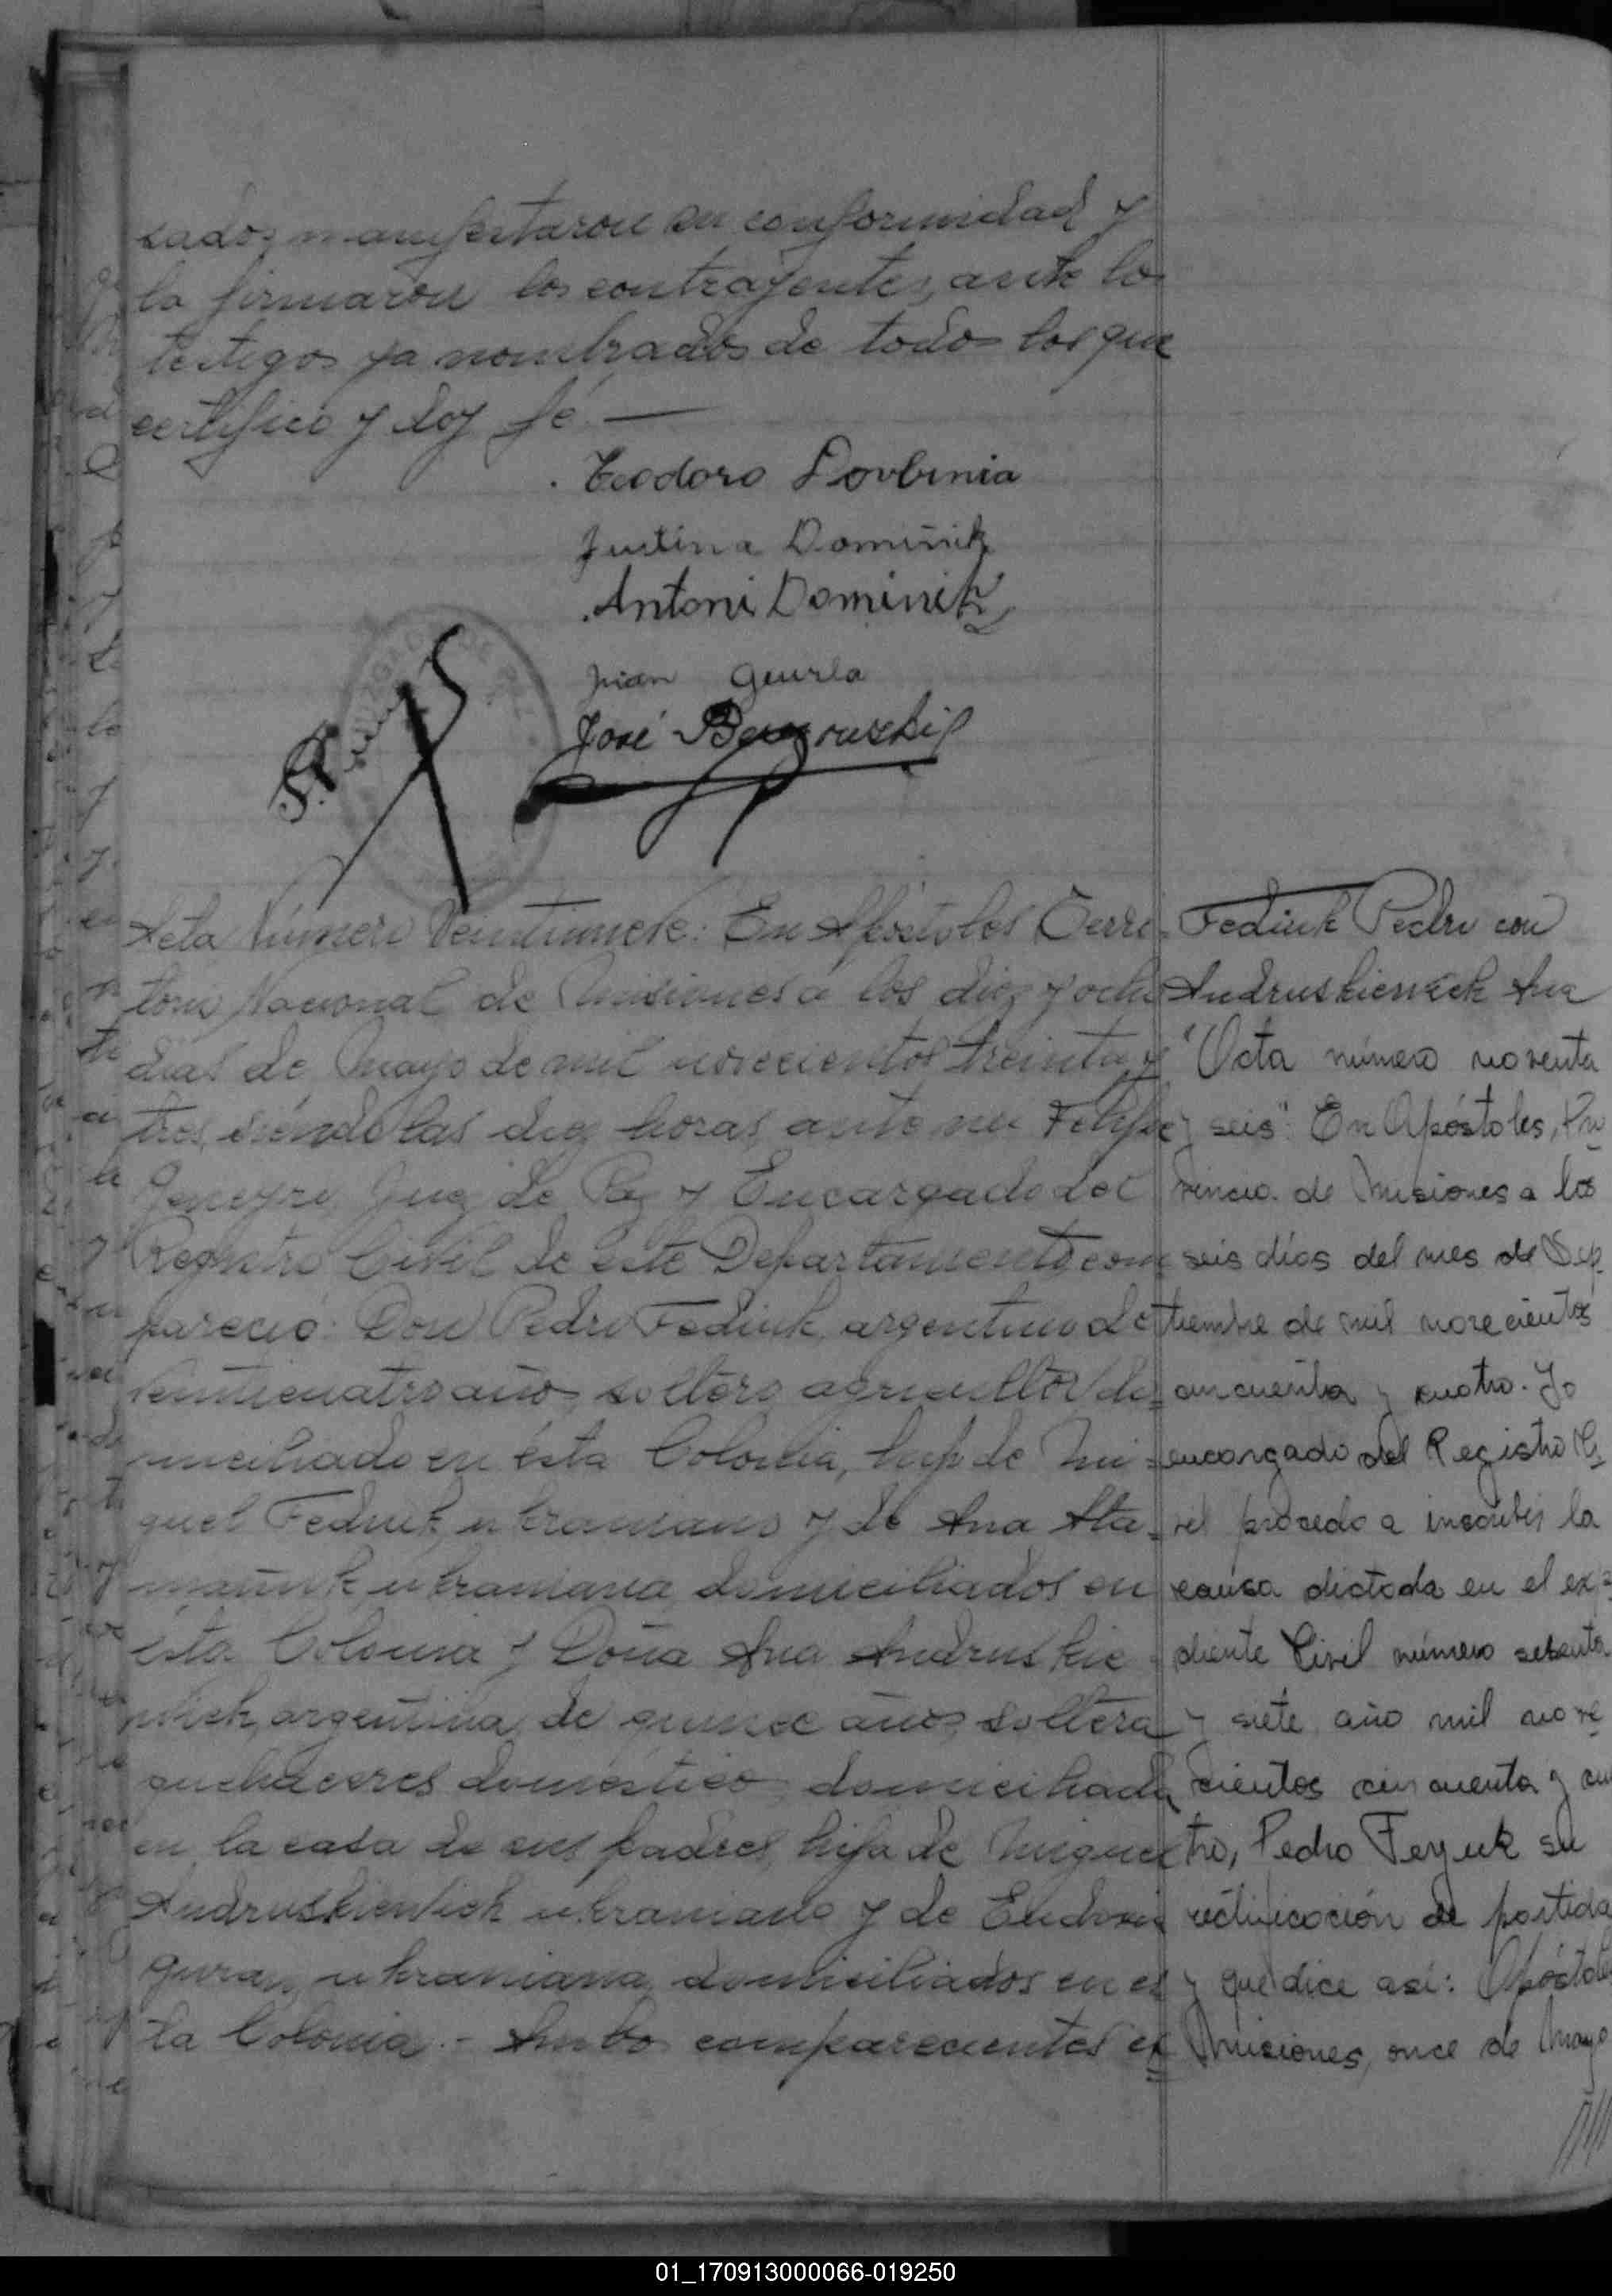 sados, manifestaron su conformidad y
la firmaron los contrayentes, ante los
testigos ya nombrados de todo los que
certifico y doy fé —
Teodoro Dovbinia
Justina Dominik
Antoni Dominik
Juan
José
JUZGADO DE PAZ
Acta Número Veintinueve: En Apóstoles Terri-
torio Nacional de Misiones a los diez y ocho
días de Mayo de mil novecientos treinta y
tres, siéndo las diez horas, ante mi Felipe
Juez de Paz y Encargado del
Registro Civil de este Departamento, com-
pareció: Don Pedro Fediuk, argentino de
veinticuatro años, soltero, agricultor, do-
miciliado en ésta Colonia, hijo de Mi-
guel Fediuk, ukraniano y de Ana Ata-
mañuk, ukraniana, domiciliados en
ésta Colonia y Doña Ana Andruskie-
wich, argentina, de quince años, soltera
quehaceres domésticos, domiciliada
en la casa de sus padres, hija de Miguel
Andruskiewich ukraniano y de Eudoxia
ukraniana, domiciliados en es
ta Colonia.- Ambos comparecientes ex
Fediuk Pedro con
Andruskiewich Ana
"Acta número noventa
y seis": En Apóstoles, Pro
vincia de Misiones a los
seis días del mes de Sep
tiembre de mil novecientos
cincuenta y cuatro. Yo
encargado del Registro Ci
vil procedo a inscribir la
causa dictada en el expe
diente Civil número setenta
y siete año mil nove
cientos cincuenta y cua
tro, Pedro Feyuk su
rectificación de partida
y que dice así: Apóstoles
Misiones, once de Mayo
01_170913000066-019250